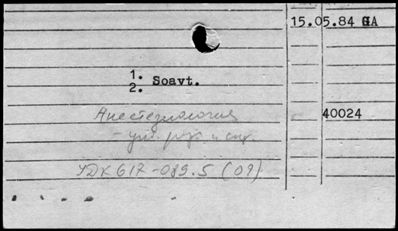 15.05.84 GA
1. Soavt.
2.
Анестезиология
40024
УДК 617-089.5 (09)